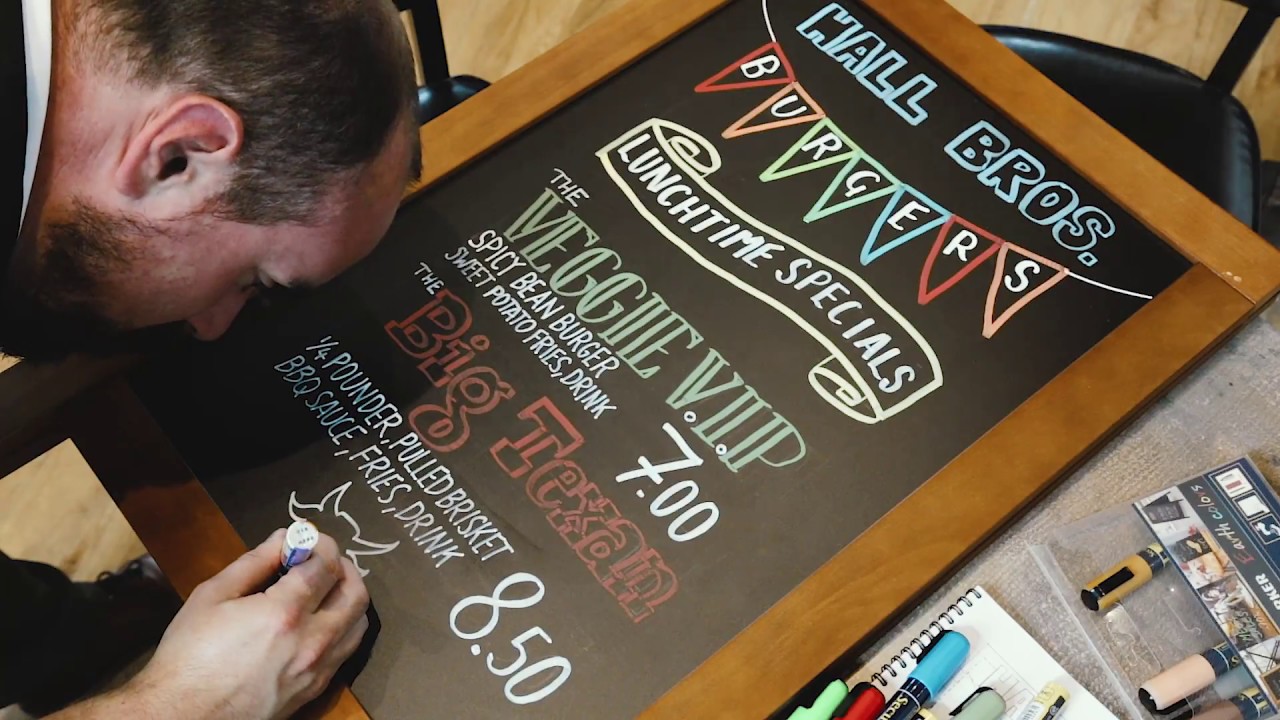 HALL BROS.
BURGERS
LUNCHTIME SPECIALS
THE
VEGGIE V.I.P
SPICY BEAN BURGER
SWEET POTATO FRIES, DRINK
7.00
THE
Big Texan
1/4 POUNDER, PULLED BRISKET
BBQ SAUCE, FRIES, DRINK
8.50
Earth colors